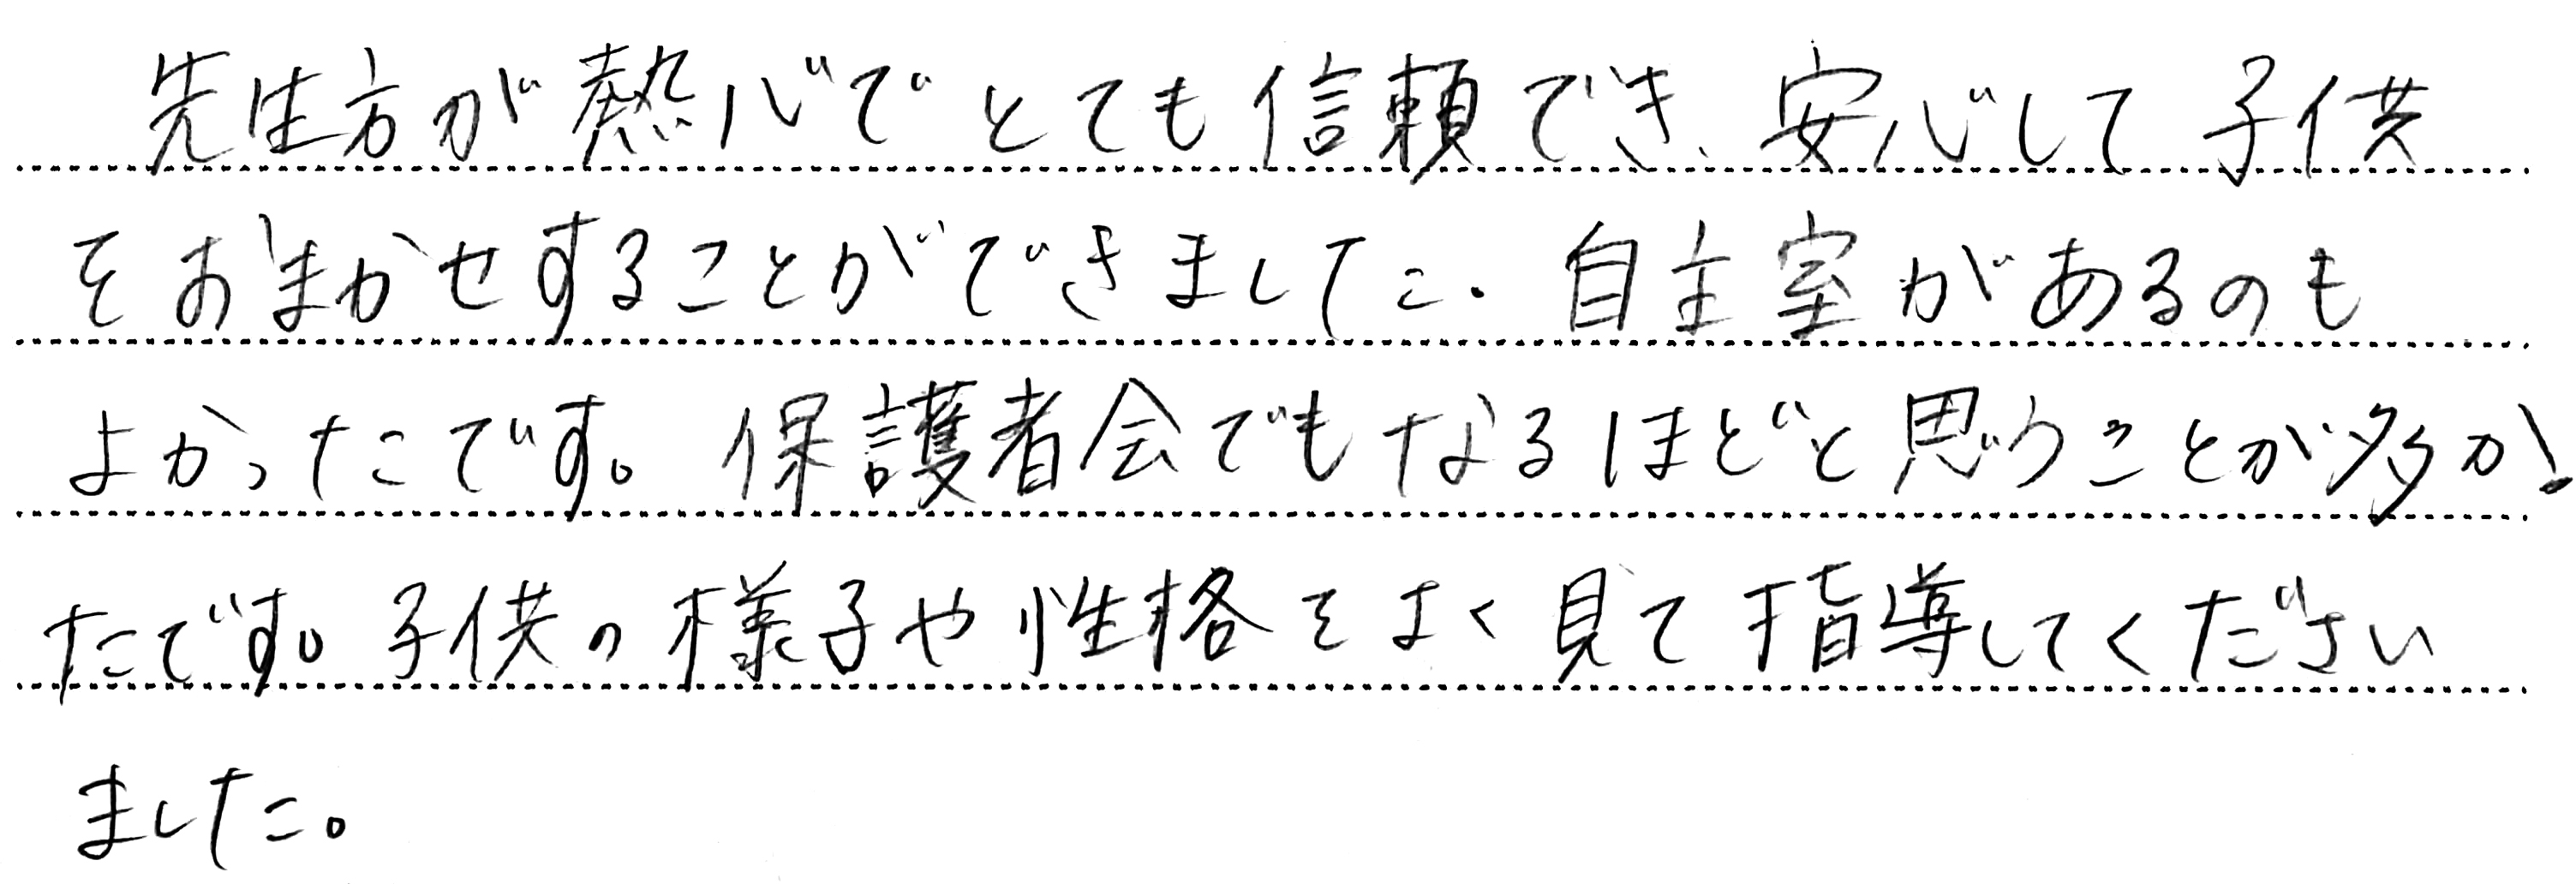 先生方が熱心でとても信頼でき、安心して子供
をおまかせすることができました。自主室があるのも
よかったです。保護者会でもなるほどと思うことが多かっ
たです。子供の様子や性格をよく見て指導してください
ました。